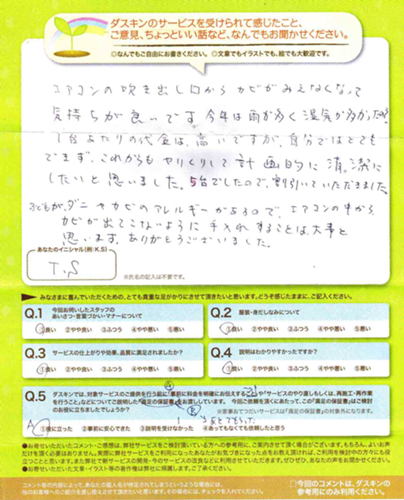 ダスキンのサービスを受けられて感じたこと、
ご意見、ちょっといい話など、なんでもお聞かせください。
◎なんでもご自由にお書きください。◎文章でもイラストでも、絵でも大歓迎です。
エアコンの吹き出し口から カビがみえなくなって
気持ちが良いです。今年は雨が多く 湿気が多かった
1台あたりの代金は、高いですが、自分ではとても
できず、これからも やりくりして 計画的に 清潔に
したいと思いました。5台でしたので、割引いていただきました
子どもが、ダニやカビのアレルギーがあるので、エアコンの中から
カビが出てこないように 手入れすることは、大事と
思います。ありがとうございました。
あなたのイニシャル(例:K.S)
T.S
※氏名の記入は不要です。
みなさまに喜んでいただくための、とても貴重な足がかりにさせて頂きたいと思います。どうぞ感じたままに、ご記入ください。
Q.1 今回お伺いしたスタッフの
あいさつ・言葉づかい・マナーについて
①良い ②やや良い ③ふつう ④やや悪い ⑤悪い
Q.2 服装・身だしなみについて
①良い ②やや良い ③ふつう ④やや悪い ⑤悪い
Q.3 サービスの仕上がりや効果、品質に満足されましたか?
①良い ②やや良い ③ふつう ④やや悪い ⑤悪い
Q.4 説明はわかりやすかったですか?
①良い ②やや良い ③ふつう ④やや悪い ⑤悪い
Q.5 ダスキンでは、対象サービスのご提供を行う前に「事前に料金を明確にお伝えすること」や「サービスのやり直しもしくは、再施工・再作業
を行うこと」などについてご説明した「満足の保証書」をお渡ししています。 今回ご依頼を頂くにあたって、この「満足の保証書」はご検討
のお役に立ちましたでしょうか?
※家事おてつだいサービスは「満足の保証書」の対象外になります。
A ①役に立った ②事前に安心できた ③どちらでもない ④あってもなくても依頼したと思う
◎お寄せいただいたコメント・ご感想は、弊社サービスをご検討頂いている方への参考用に、ご案内させて頂く場合がございます。もちろん、よいお声
だけを頂く必要はありません。
◎お寄せいただいた文章・イラスト等の著作権は弊社に帰属します。ご了承ください。
◎今回のコメントは、ダスキンの
参考用にのみ利用ください。